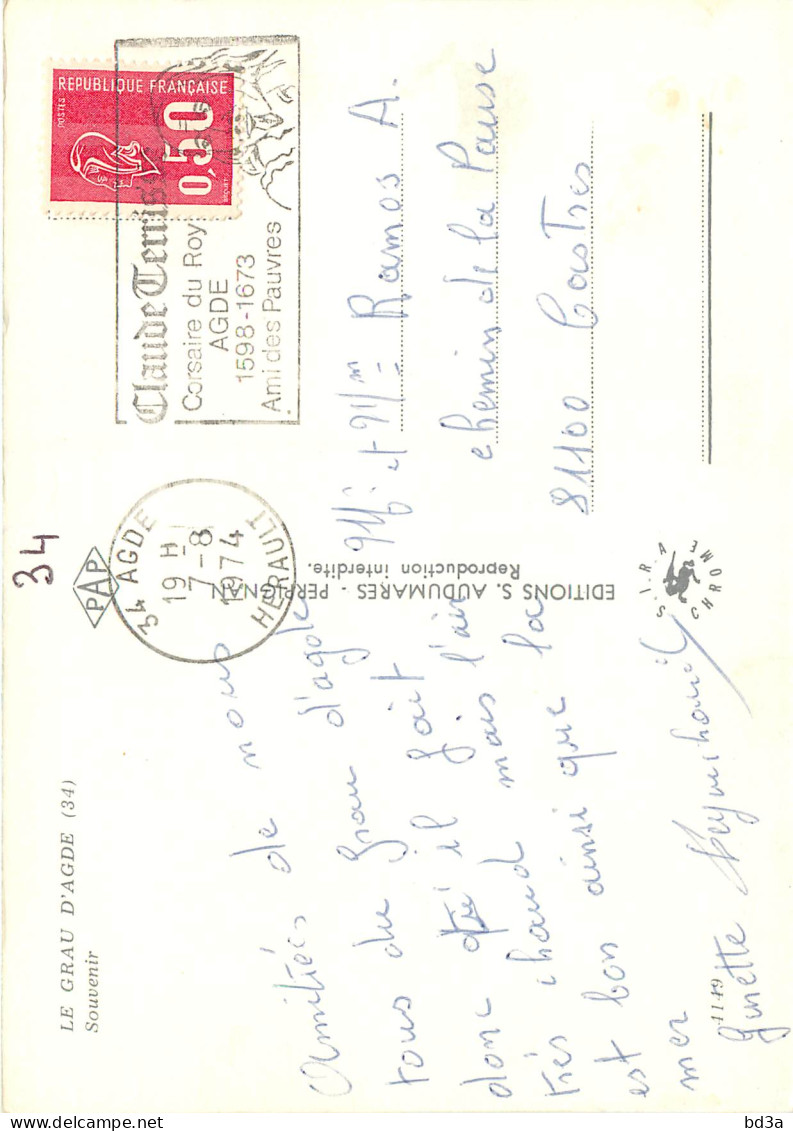 LE GRAU D'AGDE (34)
Souvenir
Amitiés de nous
tous du Grau d'agde
donc qu'il fait
très chaud mais l'air
est bon ainsi que la
mer
Ginette
1149
34
PAP
34 AGDE
19 H
7-8
1974
HERAULT
EDITIONS S. AUDUMARES - PERPIGNAN
Reproduction interdite.
S.I.R.A
CHROME
Claude Terrisse
Corsaire du Roy
AGDE
1598-1673
Ami des Pauvres
REPUBLIQUE FRANÇAISE
POSTES
0,50
BEQUET
Mr et Mme Ramos A.
chemin de la Pause
81100 Castres
bd3a